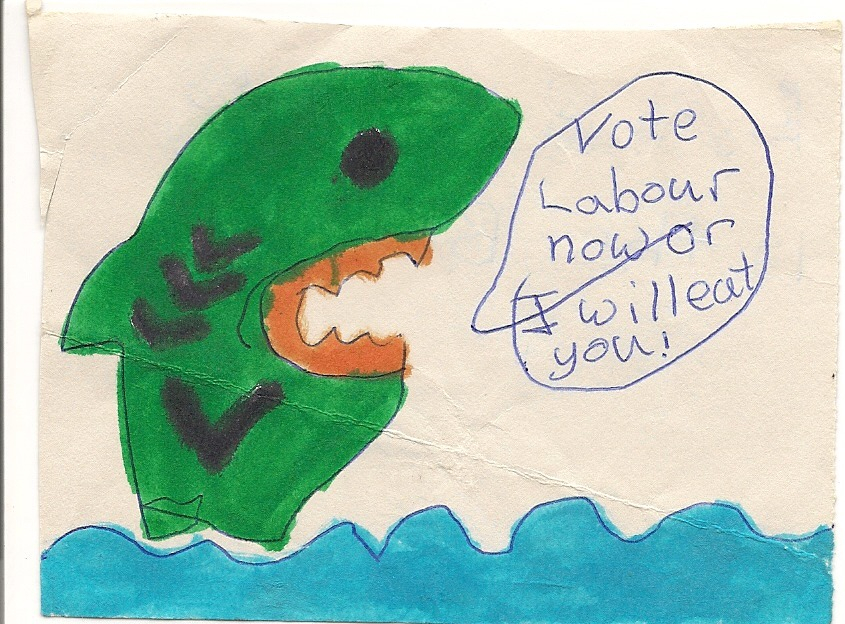 Vote
Labour
now or
I will eat
you!